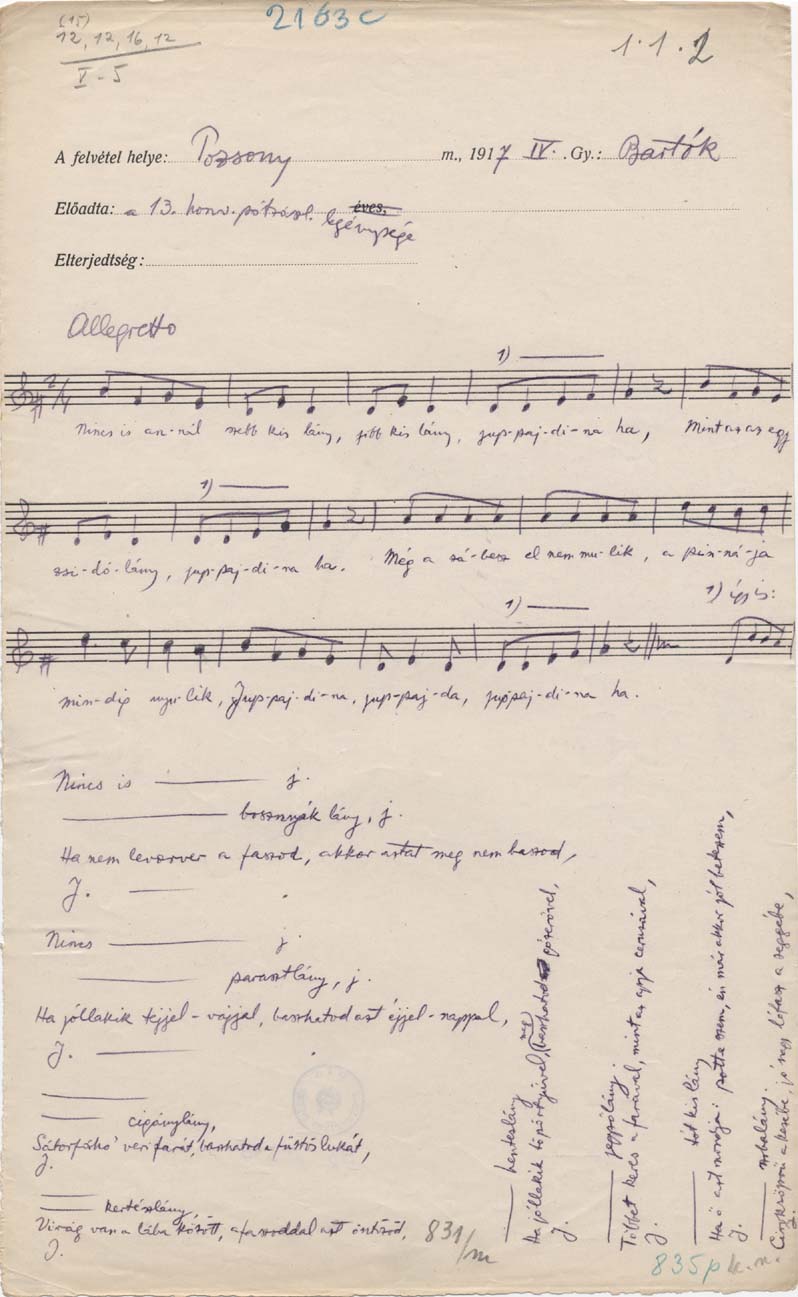 (15)
12, 12, 16, 12
V - 5
2163c
1.1.2
A felvétel helye: Pozsony m., 1917 IV. Gy.: Bartók
Előadta: a 13. honv. pótzászl. éves, legénysége
Elterjedtség:
Allegretto
2/4
1)
Nincs is an-nál szebb kis lány, jobb kis lány, jup-paj-di-na ha, Mint az az egy
1)
zsi-dó-lány, jup-paj-di-na ha. Még a sá-besz el nem mu-lik, a pin-ná-ja
1) 1) így is:
min-dig nyi-lik, Jup-paj-di-na, jup-paj-da, juppaj-di-na ha.
Nincs is j.
bosznyák lány, j.
Ha nem a faszod, akkor aztat meg nem baszod,
J.
Nincs j.
parasztlány, j.
Ha jóllakik tejjel-vajjal, baszhatod azt éjjel-nappal,
J.
cigánylány,
Sátorfa veri farát, baszhatod a füstös lukát,
J.
kertészlány,
Virág van a lába között, a faszoddal azt öntözöd,
J.
831/m
henteslány
Ha jóllakik töpörtyűvel, baszhatod meg gőzerővel,
J.
jegyzőlány.
Többet keres a farával, mint az apja ceruzával,
J.
tót kis lány
Ha ő azt mondja: szem, én már akkor jól beteszem,
J.
szobalány.
a kezébe, jó nagy lófasz a seggébe,
J.
835p
k.n.